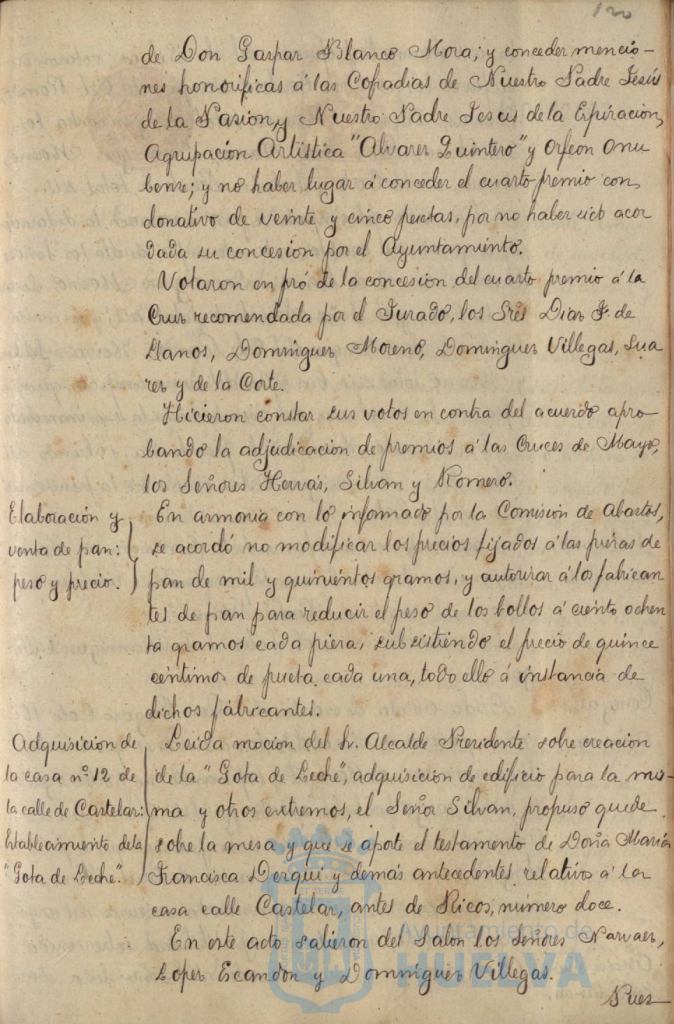 120
de Don Gaspar Blanco Mora; y conceder mencio-
nes honorificas á las Cofradias de Nuestro Padre Jesús
de la Pasion, y Nuestro Padre Jesus de la Expiración,
Agrupación Artística "Alvarez Quintero" y Orfeon Onu
bense; y no haber lugar á conceder el cuarto premio con
donativo de veinte y cinco pesetas, por no haber sido acor
dada su concesion por el Ayuntamiento.
Votaron en pró de la concesion del cuarto premio á la
Cruz recomendada por el Jurado, los Sres Diaz F. de
Llanos, Dominguez Moreno, Dominguez Villegas, Sua
rez y de la Corte.
Hicieron constar sus votos en contra del acuerdo apro-
bando la adjudicación de premios á las Cruces de Mayo,
los Señores Hervás, Silván y Romero.
Elaboración y
venta de pan:
peso y precio.
En armonia con lo informado por la Comisión de Abastos,
se acordó no modificar los precios fijados á las piezas de
pan de mil y quinientos gramos, y autorizar á los fabrican
tes de pan para reducir el peso de los bollos á ciento ochen
ta gramos cada pieza, subsistiendo el precio de quince
céntimos de peseta cada una, todo ello á instancia de
dichos fabricantes.
Adquisición de
la casa nº 12 de
la calle de Castelar:
Establecimiento de la
"Gota de Leche".
Leida mocion del Sr. Alcalde Presidente sobre creación
de la "Gota de Leche", adquisición de edificio para la mis-
ma y otros extremos, el Señor Silván, propuso quede
sobre la mesa y que se aporte el testamento de Doña Maria
Francisca Dorqui y demás antecedentes relativos á la
casa calle Castelar, antes de Ricos, número doce.
En este acto salieron del Salon los Señores Narvaez,
Lopez Escandón y Dominguez Villegas.
Pues
Ayuntamiento de
HUELVA